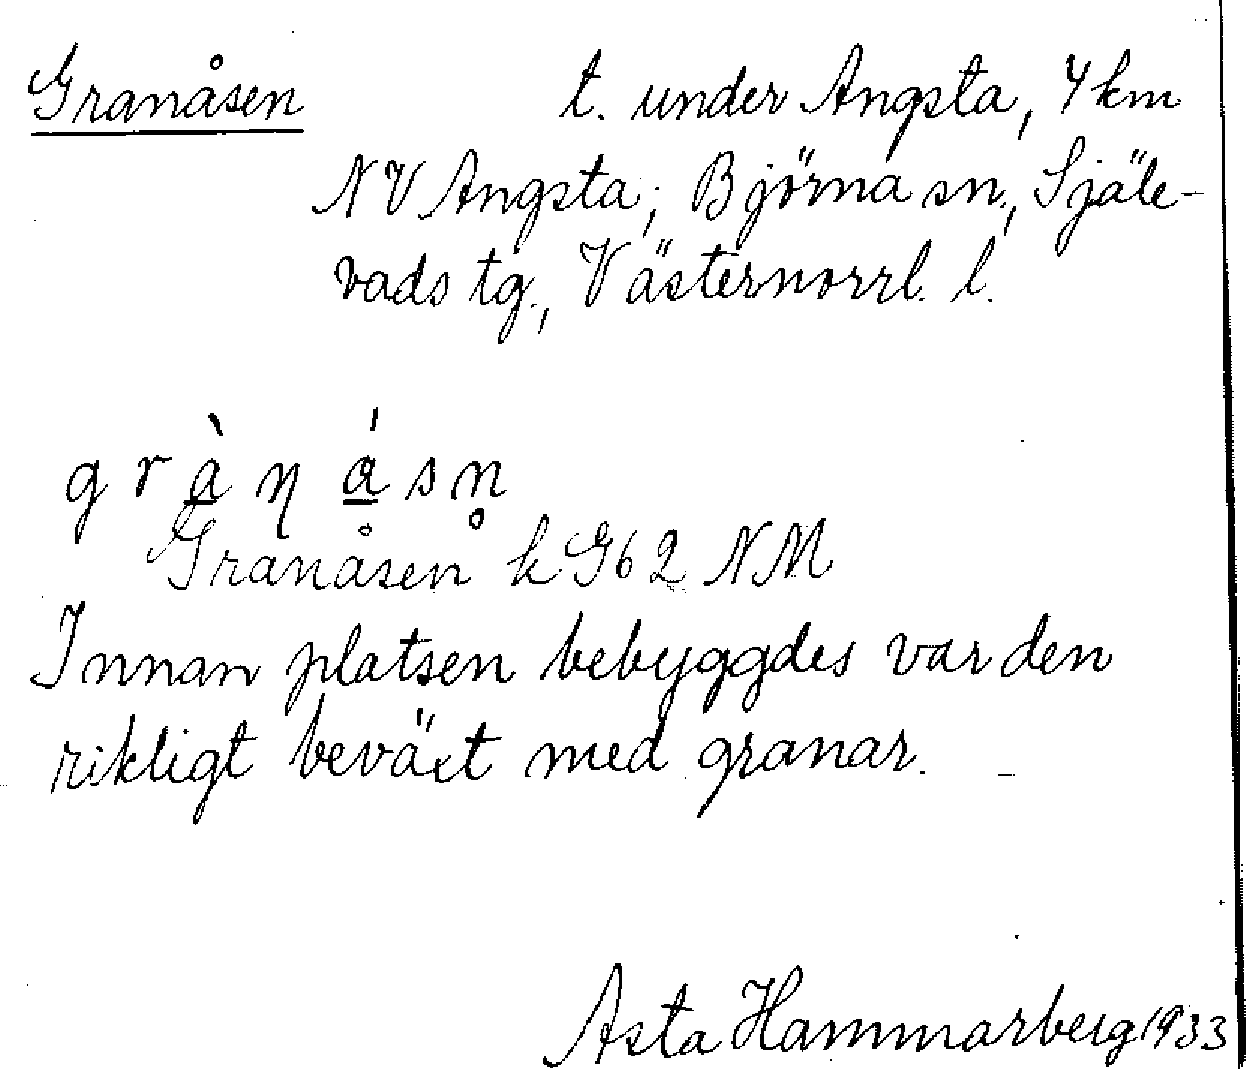 Granåsen t. under Angsta, 4 km
NV Angsta; Björna sn., Själe-
vads tg., Västernorrl. l.
Granåsen k G62 NM
Innan platsen bebyggdes var den
rikligt beväxt med granar.
Asta Hammarberg 1933